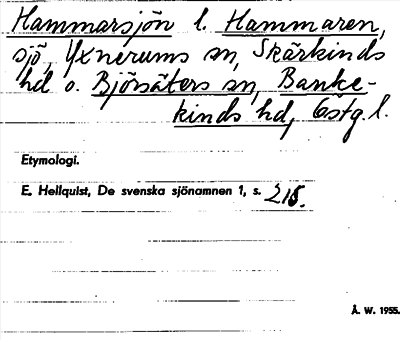 Hammarsjön l. Hammaren,
sjö, Yxnerums sn, Skärkinds
hd o. Björsäters sn, Banke-
kinds hd, Östg. l.
Etymologi.
E. Hellquist, De svenska sjönamnen 1, s. 215.
Å. W. 1955.